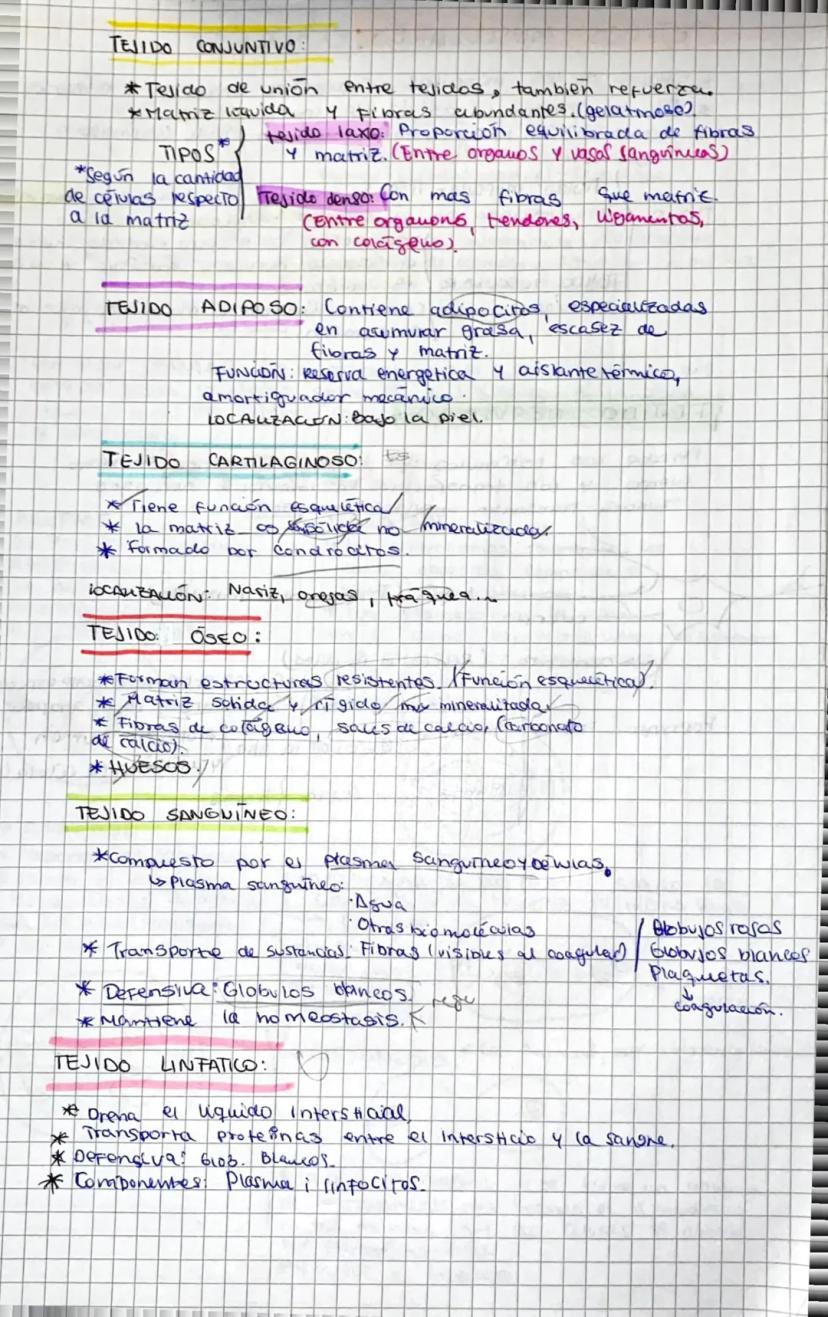 TEJIDO CONJUNTIVO:
* Tejido de unión entre tejidos, también refuerza.
* Matriz líquida y fibras abundantes. (gelatinoso)
TIPOS*
*Según la cantidad
de células respecto
a la matriz
tejido laxo: Proporción equilibrada de fibras
y matriz. (Entre organos y vasos sanguíneos)
Tejido denso: Con mas fibras que matriz.
(Entre organons, tendones, ligamentos,
con colágeno).
TEJIDO ADIPOSO: Contiene adipocitos, especializadas
en acumular grasa, escasez de
fibras y matriz.
FUNCIÓN: Reserva energética y aislante térmico,
amortiguador mecánico.
LOCALIZACIÓN: Bajo la piel.
TEJIDO CARTILAGINOSO:
* Tiene función esquelética
* la matriz es sólida no mineralizada
* Formado por condrocitos.
LOCALIZACIÓN: Nariz, orejas, tráquea...
TEJIDO ÓSEO:
* Forman estructuras resistentes. (Función esquelética).
* Matriz sólida y rígida muy mineralizada
* Fibras de colágeno, sales de calcio, (carbonato
de calcio).
* HUESOS.
TEJIDO SANGUÍNEO:
* compuesto por el plasma sanguíneo y células.
↳ Plasma sanguíneo:
· Agua
· Otras biomoléculas
* Transporte de sustancias: Fibras (visibles al coagular)
Globujos rojos
Globujos blancos
Plaquetas.
↓
coagulación.
* Defensiva: Globulos blancos.
* Mantiene la homeostasis.
TEJIDO LINFATICO:
* Drena el líquido intersticial,
* Transporta proteínas entre el intersticio y la sangre.
* Defensiva: Glob. Blancos.
* Componentes: Plasma i linfocitos.